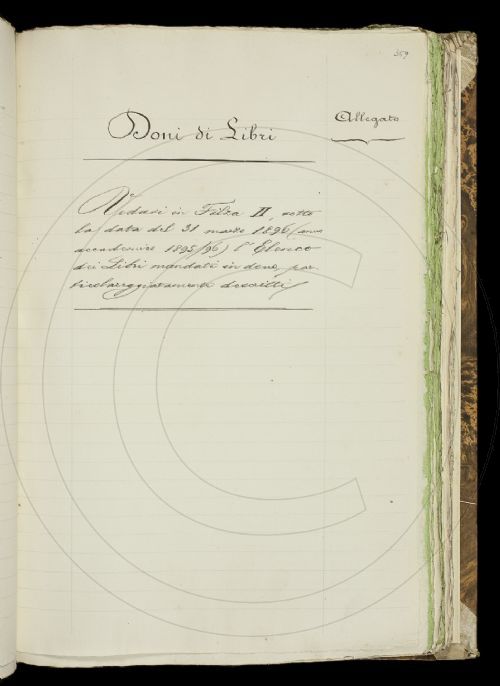 359
Doni di Libri
Allegato
Vedasi in Filza II, sotto
la data del 31 marzo 1896 (anno
accademico 1895/96) l'Elenco
dei Libri mandati in dono, par
ticolareggiatamente descritti